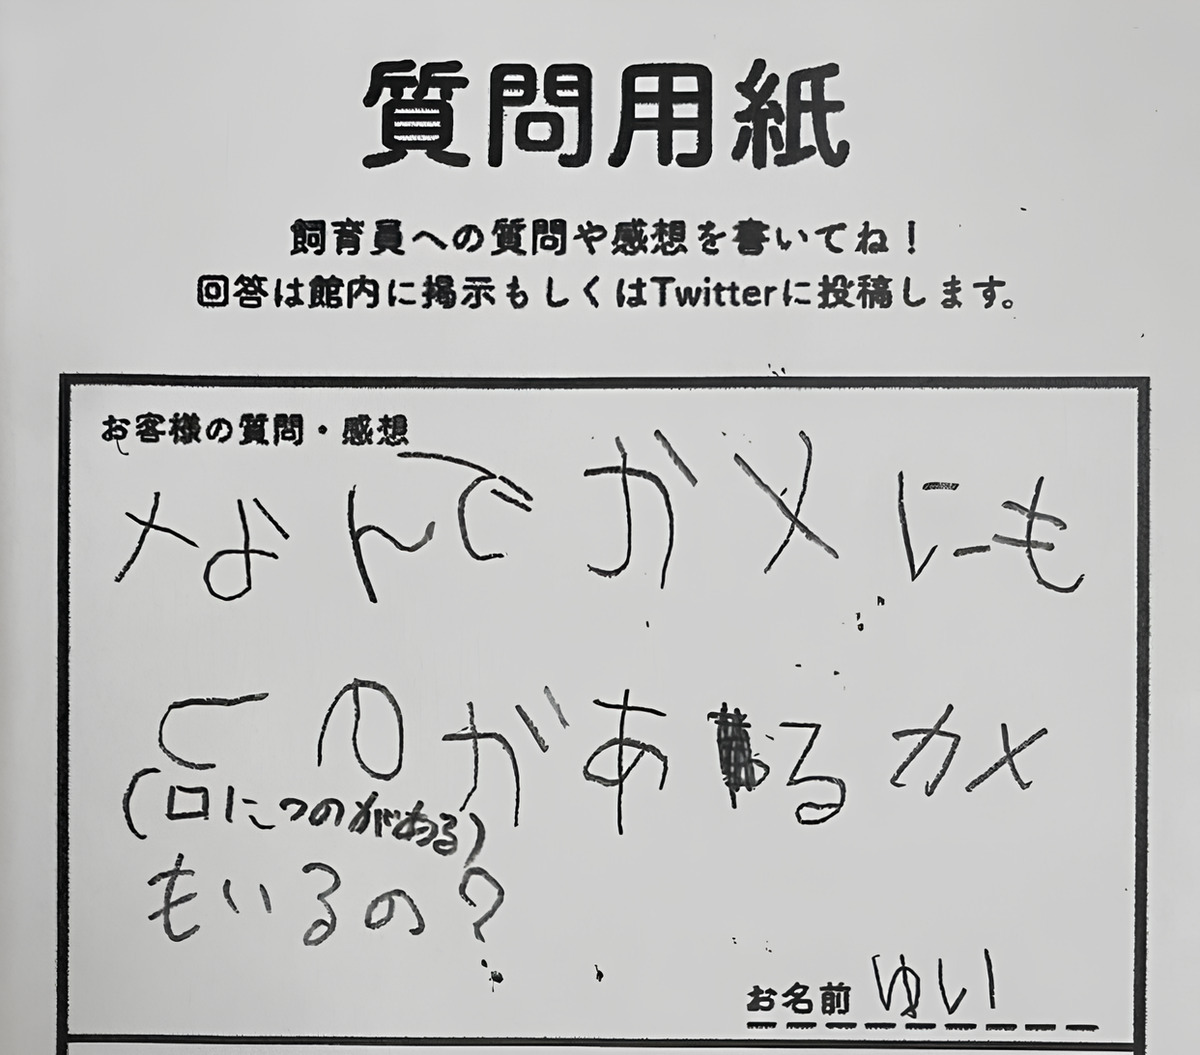 質問用紙
飼育員への質問や感想を書いてね！
回答は館内に掲示もしくはTwitterに投稿します。
お客様の質問・感想
なんでかメにも
つのがあるカメ
(口につのがある)
もいるの?
お名前 ゆい